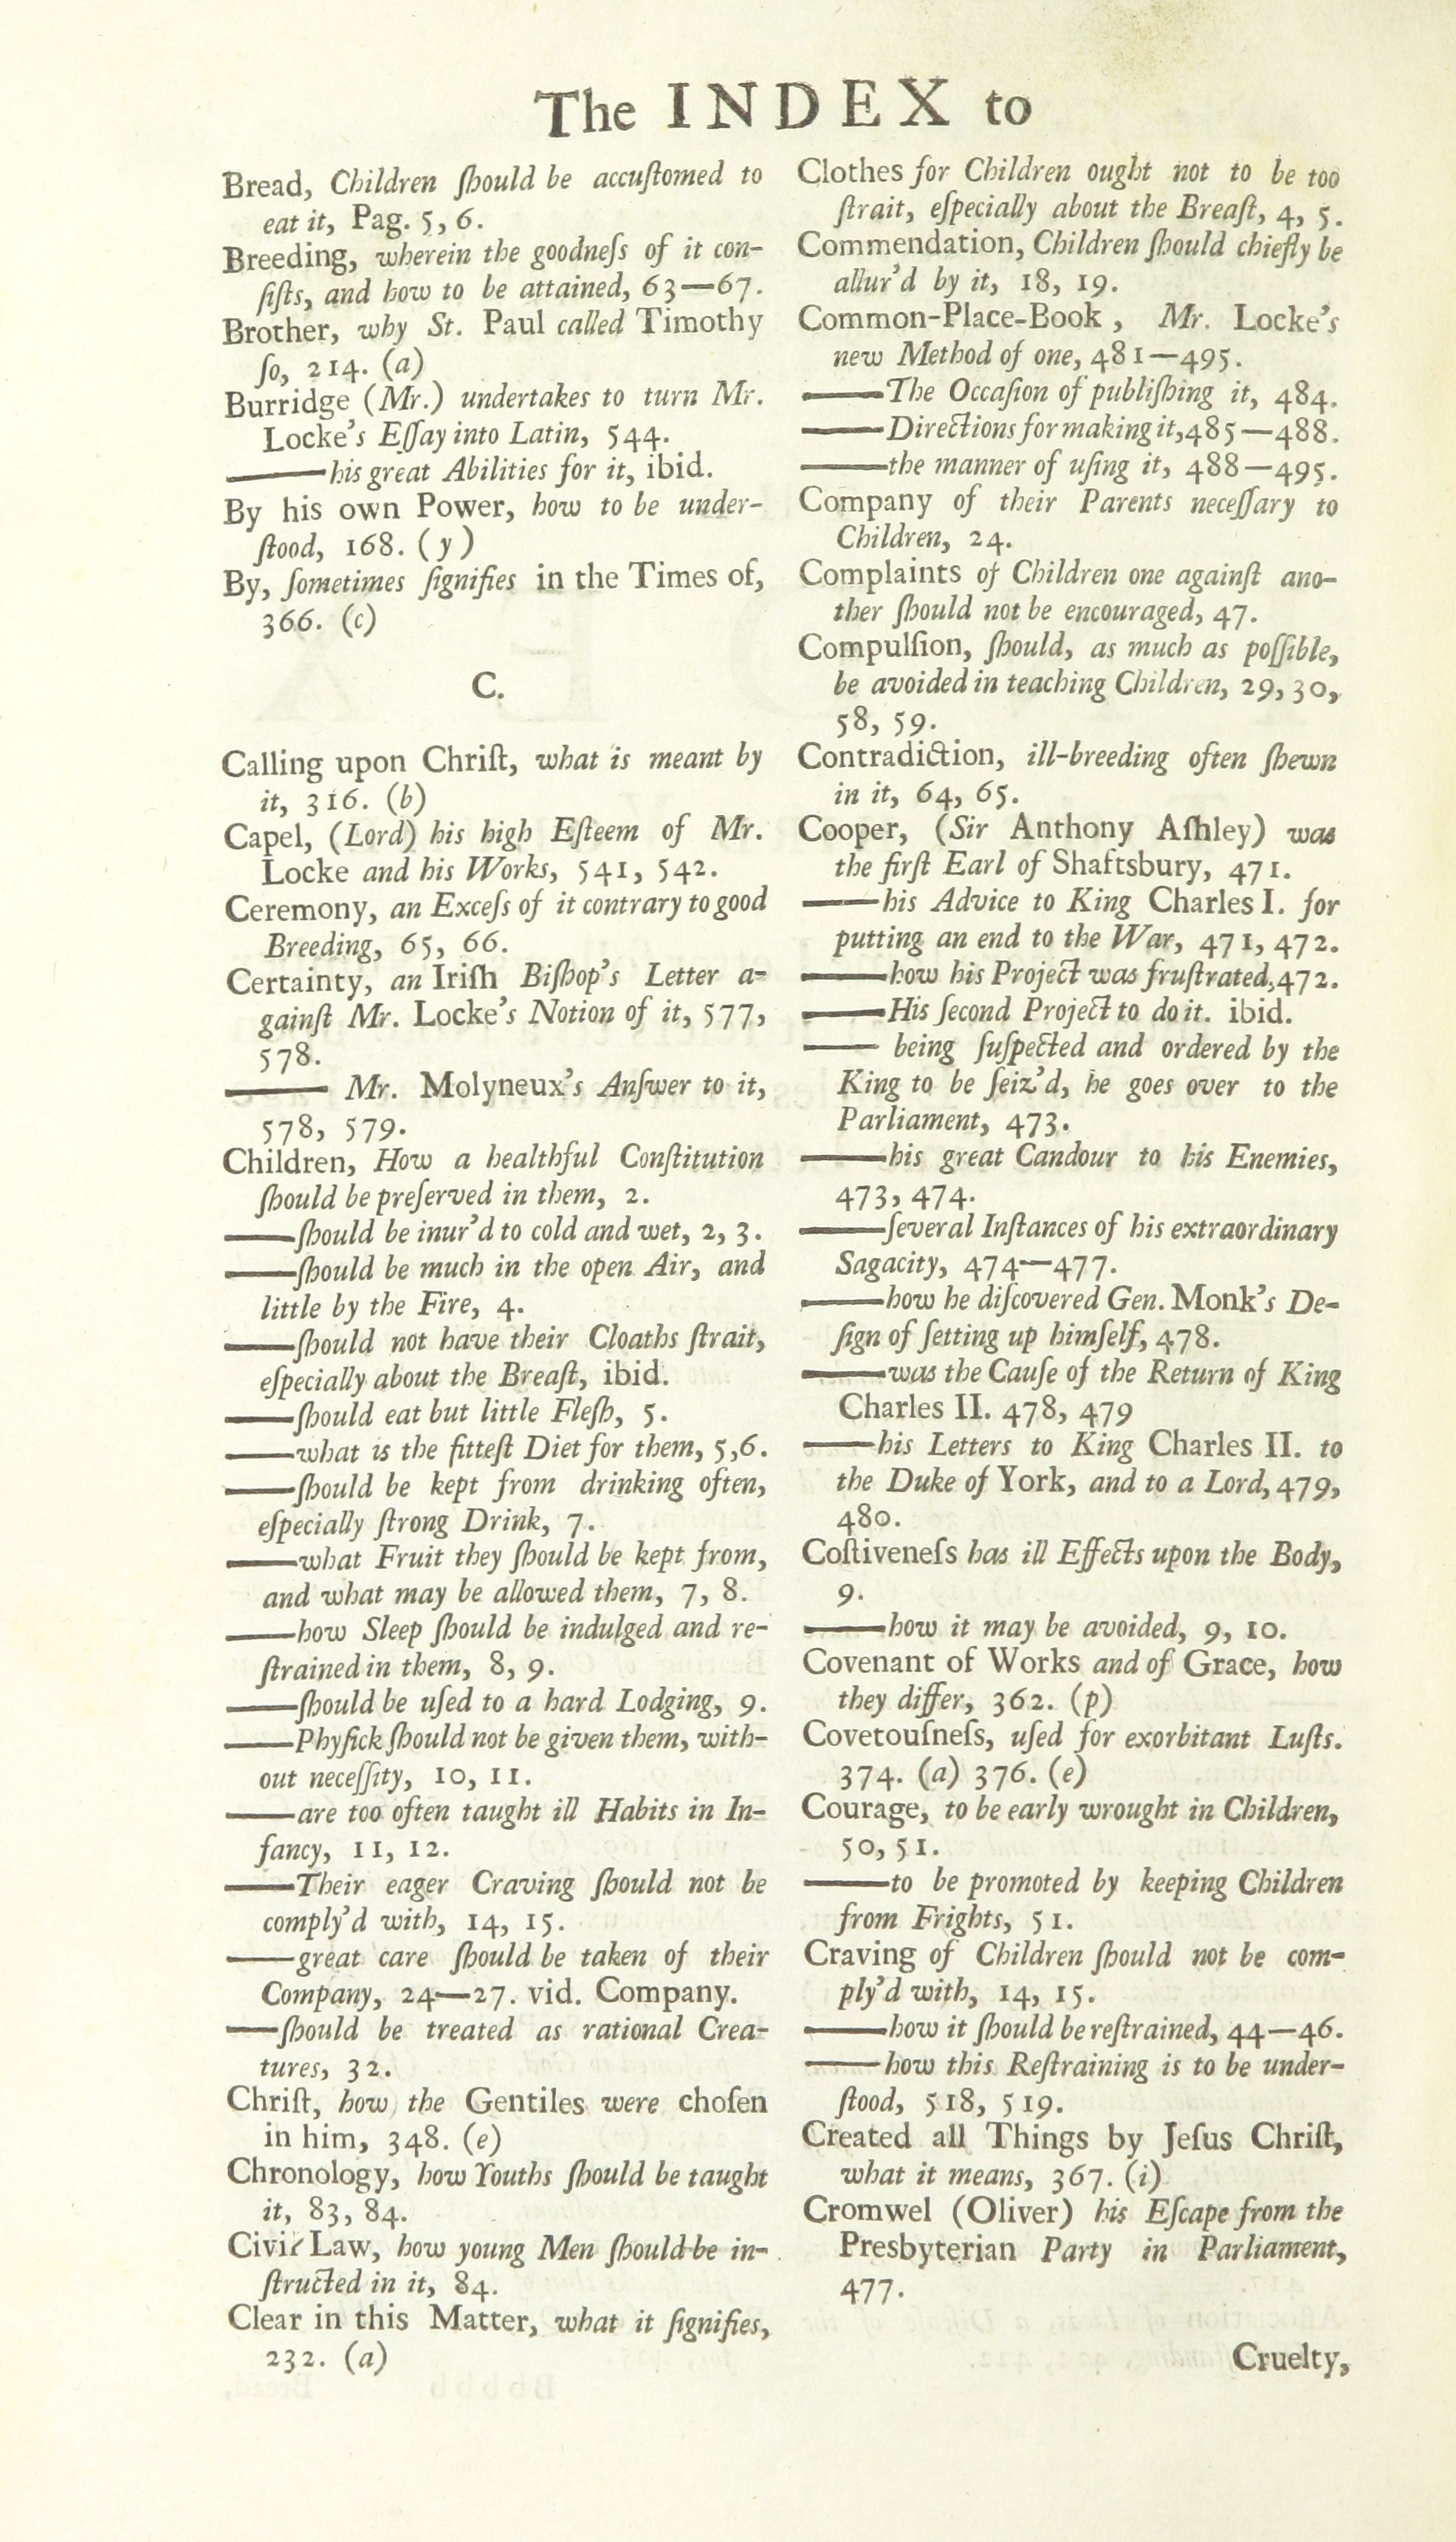 The INDEX to
Bread, Children ſhould be accuſtomed to
eat it, Pag. 5, 6.
Breeding, wherein the goodneſs of it con-
ſiſts, and how to be attained, 63—67.
Brother, why St. Paul called Timothy
ſo, 214. (a)
Burridge (Mr.) undertakes to turn Mr.
Locke's Eſſay into Latin, 544.
——his great Abilities for it, ibid.
By his own Power, how to be under-
ſtood, 168. (y)
By, ſometimes ſignifies in the Times of,
366. (c)
C.
Calling upon Chriſt, what is meant by
it, 316. (b)
Capel, (Lord) his high Eſteem of Mr.
Locke and his Works, 541, 542.
Ceremony, an Exceſs of it contrary to good
Breeding, 65, 66.
Certainty, an Iriſh Biſhop's Letter a-
gainſt Mr. Locke's Notion of it, 577,
578.
—— Mr. Molyneux's Anſwer to it,
578, 579.
Children, How a healthful Conſtitution
ſhould be preſerved in them, 2.
——ſhould be inur'd to cold and wet, 2, 3.
——ſhould be much in the open Air, and
little by the Fire, 4.
——ſhould not have their Cloaths ſtrait,
eſpecially about the Breaſt, ibid.
——ſhould eat but little Fleſh, 5.
——what is the fitteſt Diet for them, 5,6.
——ſhould be kept from drinking often,
eſpecially ſtrong Drink, 7.
——what Fruit they ſhould be kept from,
and what may be allowed them, 7, 8.
——how Sleep ſhould be indulged and re-
ſtrained in them, 8, 9.
——ſhould be uſed to a hard Lodging, 9.
——Phyſick ſhould not be given them, with-
out neceſſity, 10, 11.
——are too often taught ill Habits in In-
fancy, 11, 12.
——Their eager Craving ſhould not be
comply'd with, 14, 15.
——great care ſhould be taken of their
Company, 24—27. vid. Company.
——ſhould be treated as rational Crea-
tures, 32.
Chriſt, how the Gentiles were choſen
in him, 348. (e)
Chronology, how Youths ſhould be taught
it, 83, 84.
Civil Law, how young Men ſhould be in-
ſtructed in it, 84.
Clear in this Matter, what it ſignifies,
232. (a)
Clothes for Children ought not to be too
ſtrait, eſpecially about the Breaſt, 4, 5.
Commendation, Children ſhould chiefly be
allur'd by it, 18, 19.
Common-Place-Book, Mr. Locke's
new Method of one, 481—495.
——The Occaſion of publiſhing it, 484.
——Directions for making it,485—488.
——the manner of uſing it, 488—495.
Company of their Parents neceſſary to
Children, 24.
Complaints of Children one againſt ano-
ther ſhould not be encouraged, 47.
Compulſion, ſhould, as much as poſſible,
be avoided in teaching Children, 29, 30,
58, 59.
Contradiction, ill-breeding often ſhewn
in it, 64, 65.
Cooper, (Sir Anthony Aſhley) was
the firſt Earl of Shaftsbury, 471.
——his Advice to King Charles I. for
putting an end to the War, 471, 472.
——how his Project was fruſtrated,472.
——His ſecond Project to do it. ibid.
—— being ſuſpected and ordered by the
King to be ſeiz'd, he goes over to the
Parliament, 473.
——his great Candour to his Enemies,
473, 474.
——ſeveral Inſtances of his extraordinary
Sagacity, 474—477.
——how he diſcovered Gen. Monk's De-
ſign of ſetting up himſelf, 478.
——was the Cauſe of the Return of King
Charles II. 478, 479
——his Letters to King Charles II. to
the Duke of York, and to a Lord, 479,
480.
Coſtiveneſs has ill Effects upon the Body,
9.
——how it may be avoided, 9, 10.
Covenant of Works and of Grace, how
they differ, 362. (p)
Covetouſneſs, uſed for exorbitant Luſts.
374. (a) 376. (e)
Courage, to be early wrought in Children,
50, 51.
——to be promoted by keeping Children
from Frights, 51.
Craving of Children ſhould not be com-
ply'd with, 14, 15.
——how it ſhould be reſtrained, 44—46.
——how this Reſtraining is to be under-
ſtood, 518, 519.
Created all Things by Jeſus Chriſt,
what it means, 367. (i)
Cromwel (Oliver) his Eſcape from the
Presbyterian Party in Parliament,
477.
Cruelty,